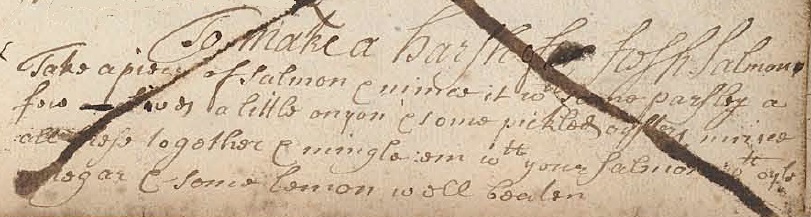 To make a harsh of fresh Salmon
Take a piece of Salmon & mince it wth some parsley a
few a little onyon & some pickled oysters mince
all these together & mingle em wtt your Salmon wtt oyle
vinegar & some lemon well beaten